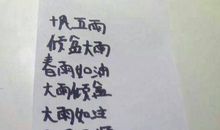 十风五雨
倾盆大雨
春雨如油
大雨倾盆
大雨如注